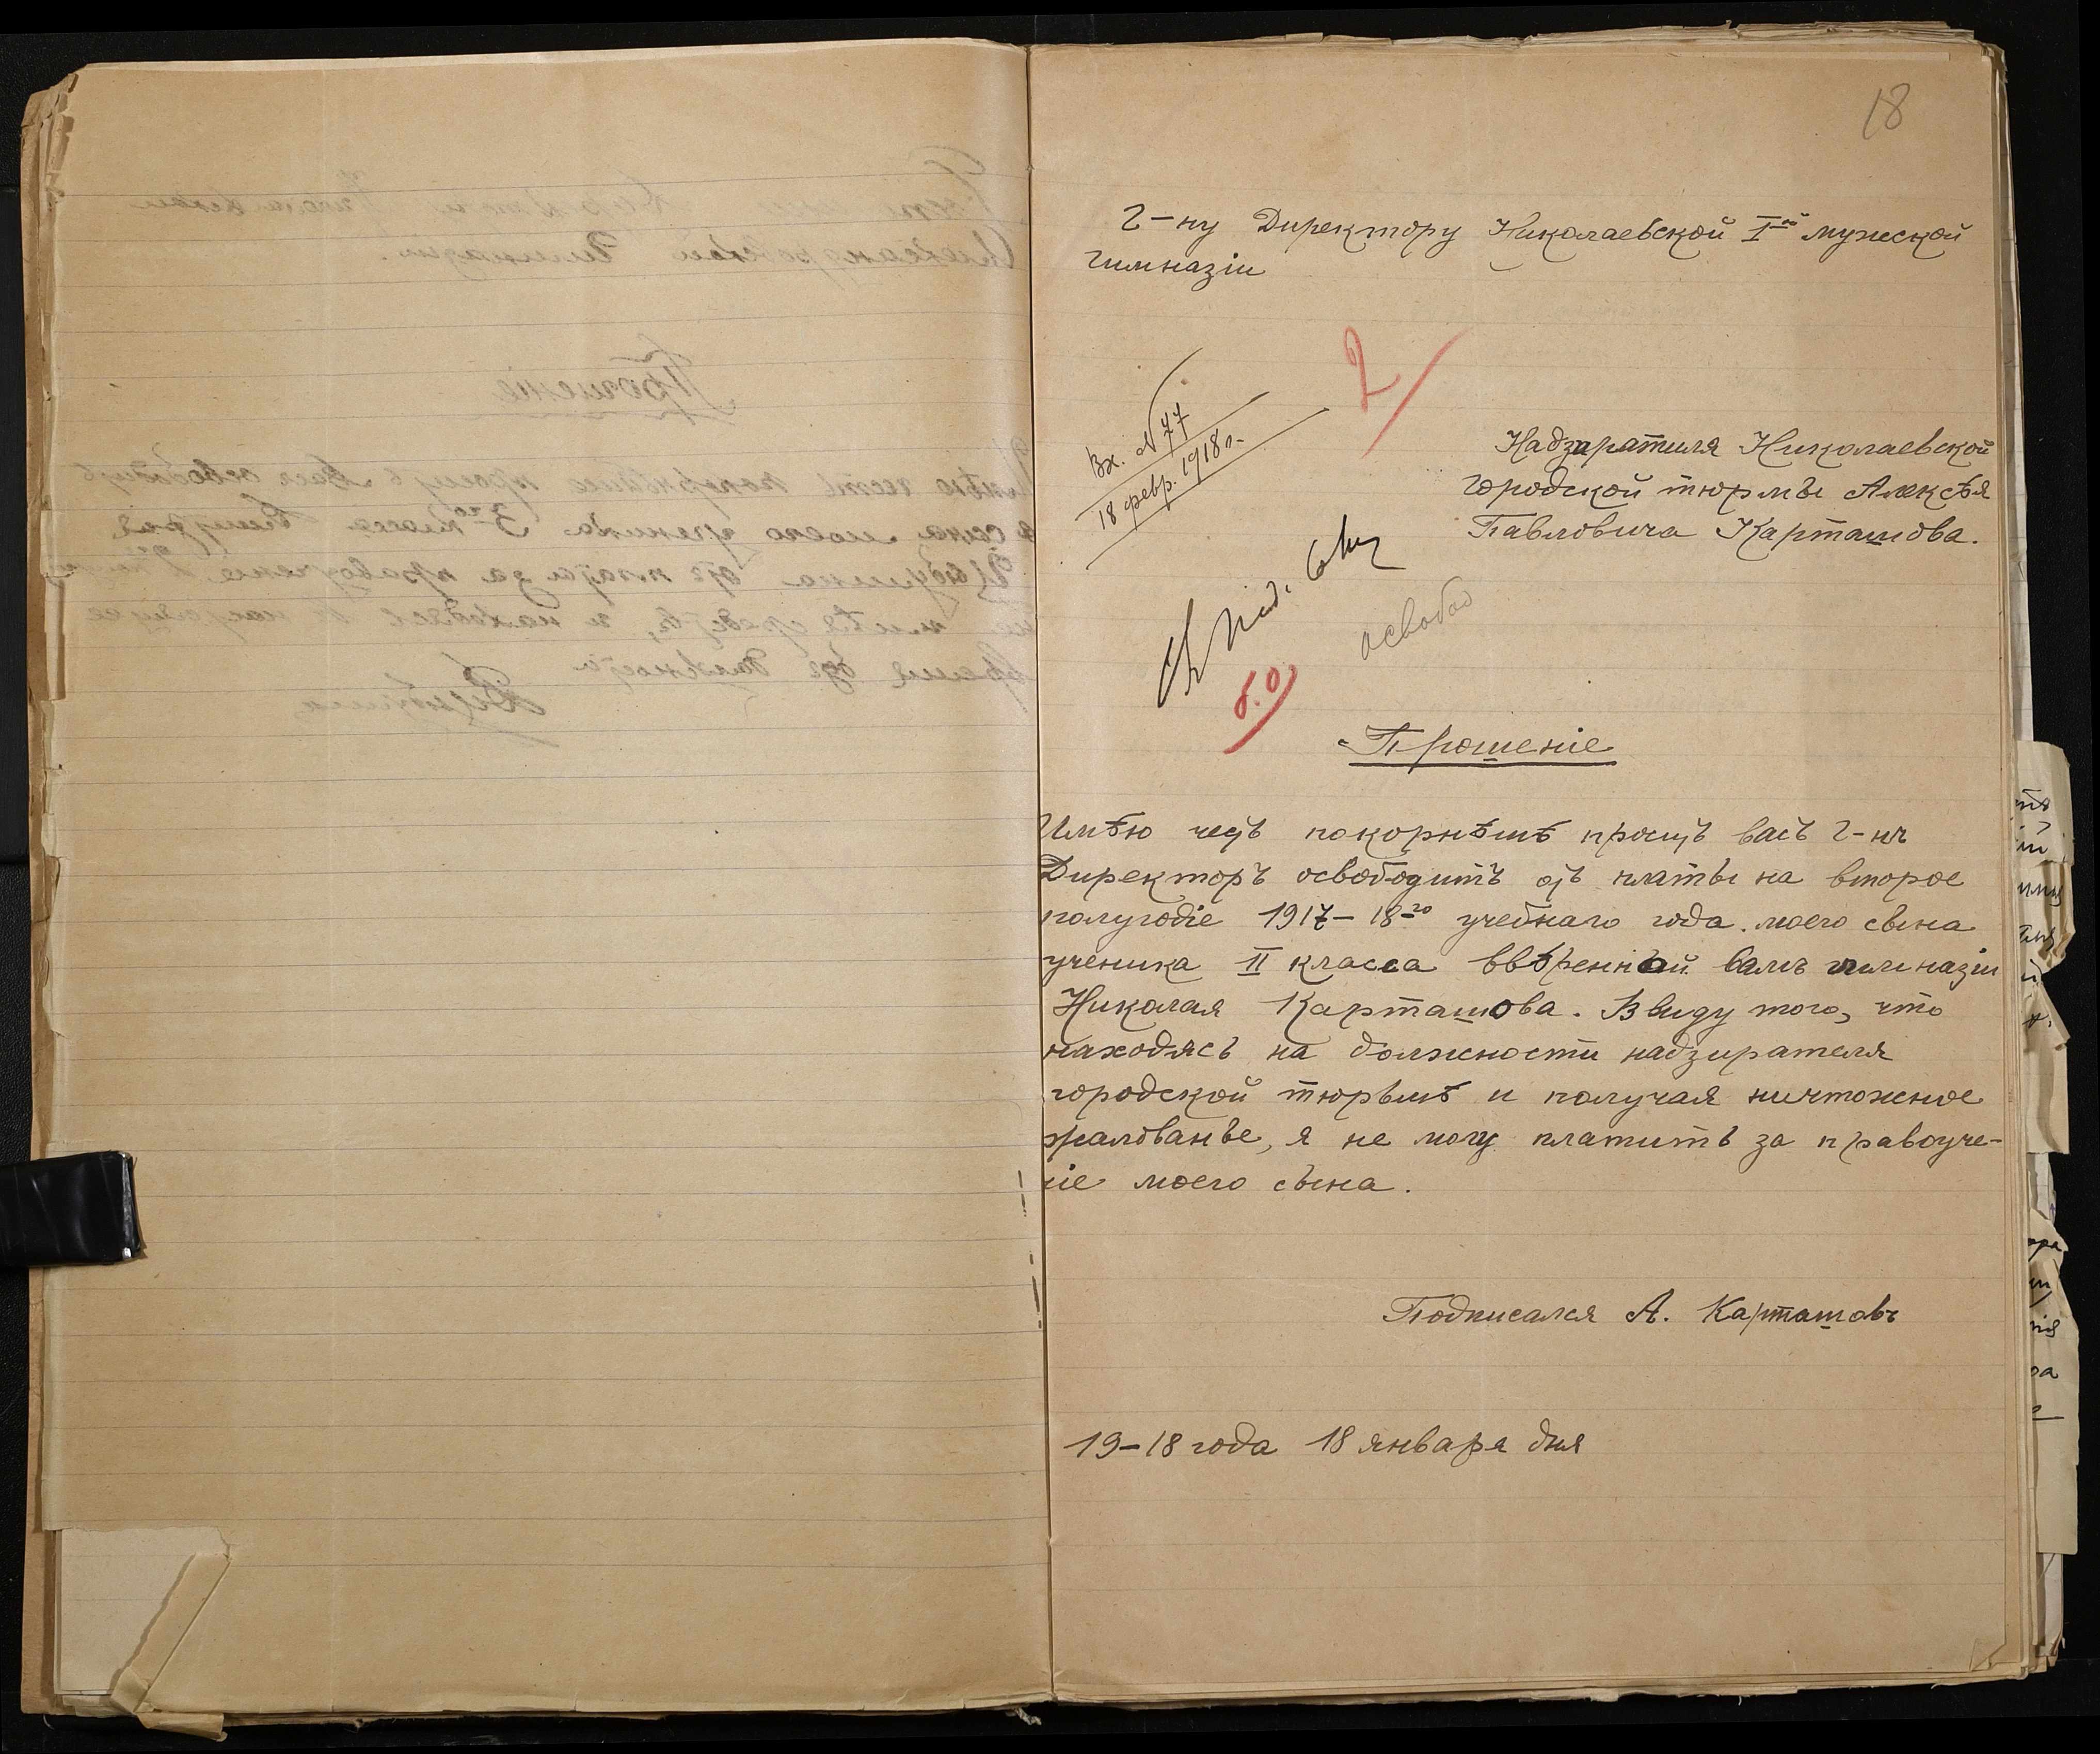 18
Г-ну Директору Николаевской Iой мужской
Гимназіи
2
Вх. N 77
18 февр. 1918 г.
Надзаратиля Николаевской
городской тюрмы Алексѣя
Павловича Карташова.
освобод
б.о
Прошеніе
Имѣю честь покорнѣшѣ просить васъ г-нъ
Директоръ освободить отъ платы на второе
полугодіе 1917-18го учебнаго года. моего сына
ученика II класса ввѣренной вамъ гимназіи
Николая Карташова. Ввиду того, что
находясь на должности надзирателя
городской тюрьмѣ и получая ничтожное
жалованье, я не могу платить за правоуче-
ніе моего сына.
Подписался А. Карташовъ
19-18 года 18 января дня